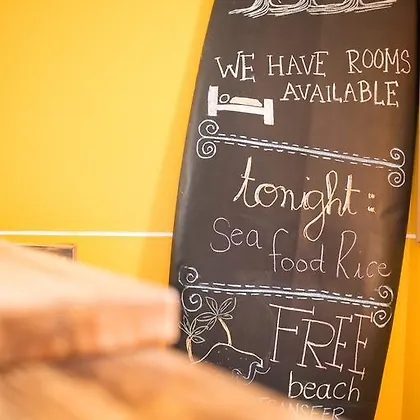 WE HAVE ROOMS
AVAILABLE
tonight:
Sea
food Rice
FREE
beach
TRANSFER